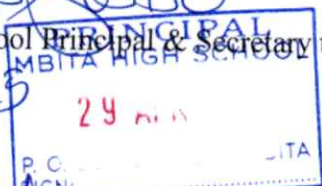 ool Principal & Secretary
PRINCIPAL
MBITA HIGH SCHOOL
29
P. O. ITA
SIGN: